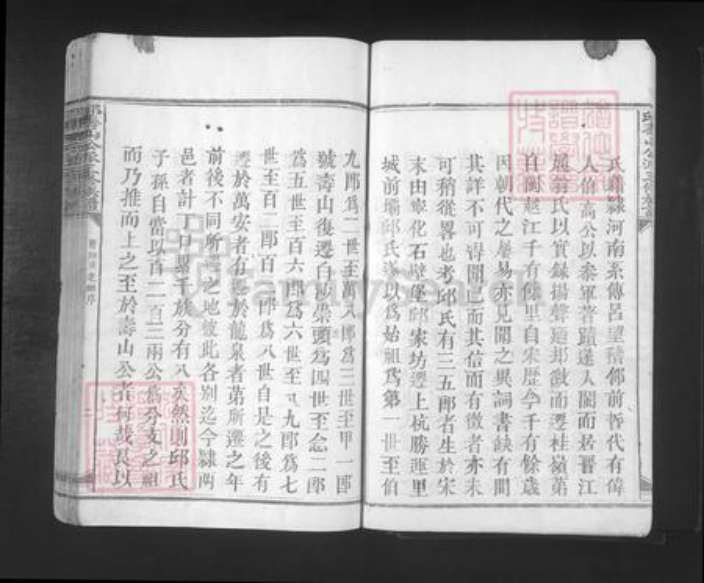 氏籍隸河南系傳呂望稽邻前哲代有偉
人伯高公以參軍著蹟遂入閩而居晋江
展翁氏以實錄揚聲廼邦漵而遷桂嶺第
自閩越江千有餘里自宋歷今千有餘歲
因朝代之屢易亦見聞之異詞書缺有間
其詳不可得聞已而其信而有徵者亦未
可稍從畧也考邱氏有三五郎者生於宋
末由寧化石壁遷邱家坊遷上杭勝運里
城前壩邱氏遂以為始祖為第一世至伯
九郎為二世至萬八郎為三世至甲一郎
號壽山復遷白砂崇頭為四世至念二郎
為五世至百六郎為六世至九郎為七
世至百二郎百郎為八世自是之後有
遷於萬安者有遷於龍泉者第所遷之年
前後不同所遷之地彼此各別迄今隸两
邑者計丁口累千族分有八矣然則邱氏
子孫自當以百二百三兩公為分支之祖
而乃推而上之至於壽山公者何哉良以